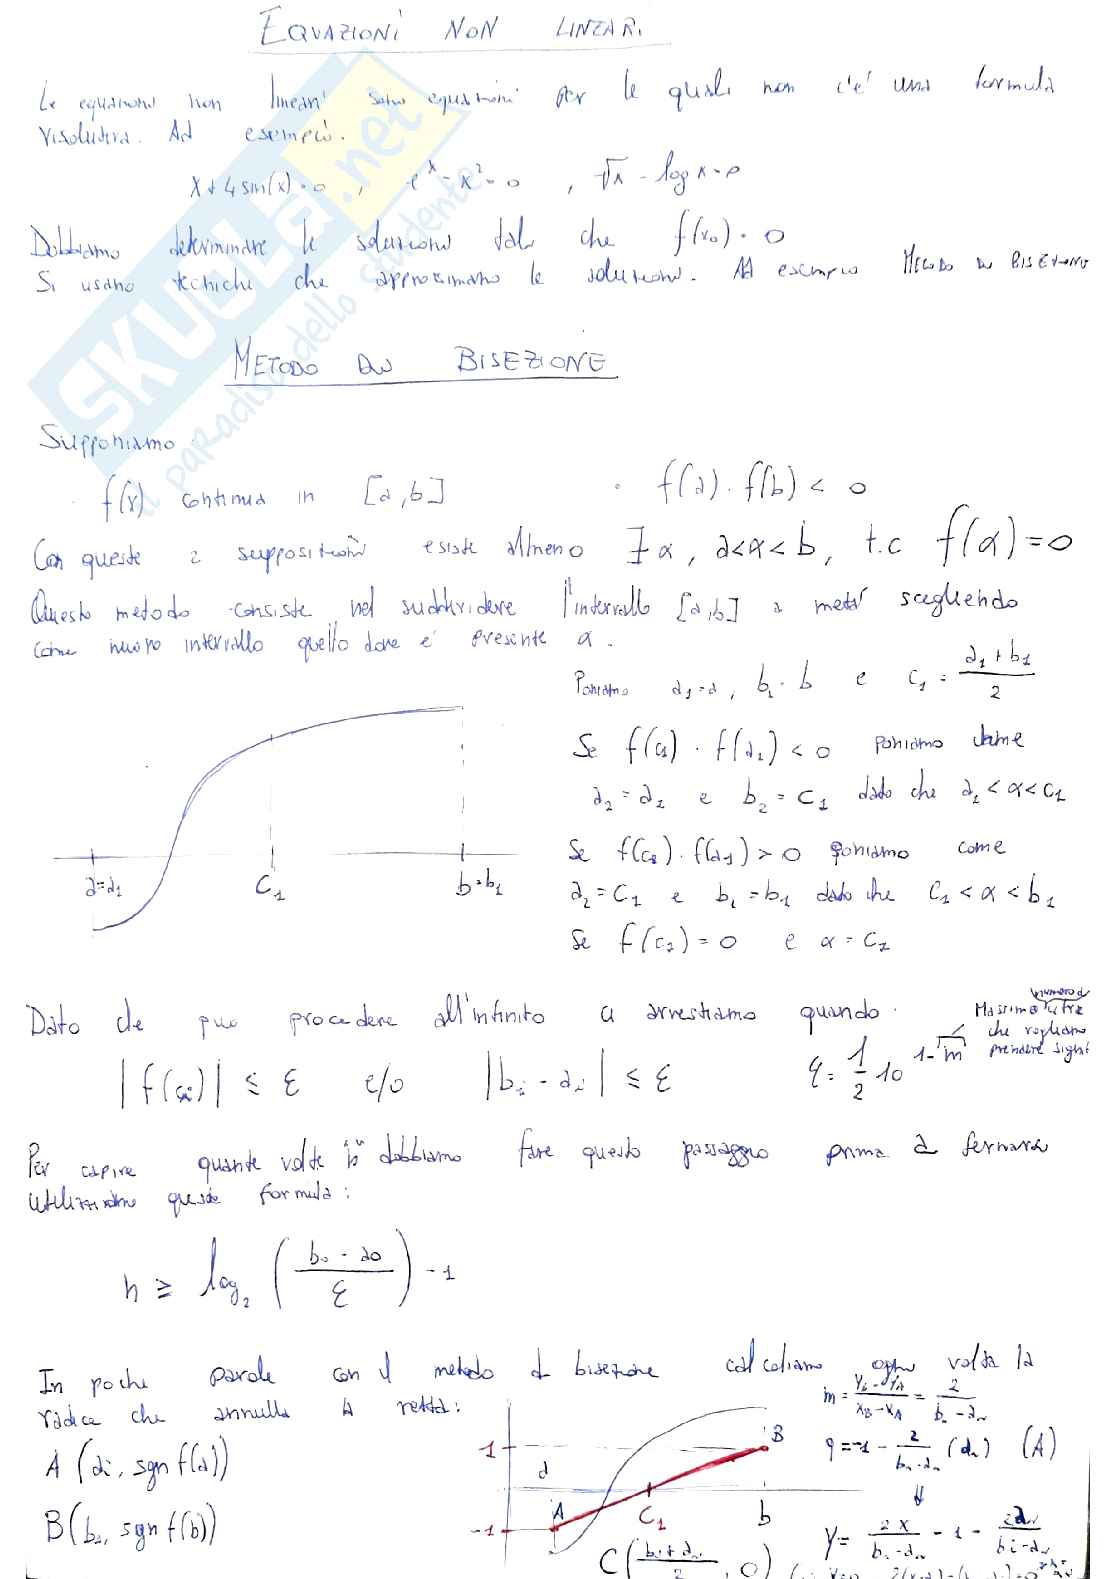 EQUAZIONI NON LINEARI
Le equazioni non lineari sono equazioni per le quali non c'e' una formula
risolutiva. Ad esempio.
x+4sin(x)=0 , e^x-x^2=0 , √x - log x=0
Dobbiamo determinare le soluzioni tale che f(x₀)=0
Si usano techiche che approssimano le soluzioni. Ad esempio METODO DI BISEZIONE
METODO DI BISEZIONE
Supponiamo
· f(x) continua in [a,b] · f(a)·f(b)<0
Con queste 2 supposizioni esiste almeno ∃ α, a<α<b, t.c f(α)=0
Questo metodo consiste nel suddividere l'intervallo [a,b] a metà scegliendo
come nuovo intervallo quello dove è presente α.
Poniamo a₁=a, b₁=b e c₁ = (a₁+b₁)/2
Se f(c₁)·f(a₁)<0 poniamo come
a₂=a₁ e b₂=c₁ dato che a₁<α<c₁
Se f(c₁)·f(a₁)>0 poniamo come
a₂=c₁ e b₂=b₁ dato che c₁<α<b₁
Se f(c₁)=0 e α=c₁
a=a₁ C₁ b=b₁
Dato che può procedere all'infinito ci arrestiamo quando
|f(cᵢ)| ≤ ε e/o |bᵢ-aᵢ| ≤ ε ε = 1/2 10^(1-m)
numero di
Massimo cifre
che vogliamo
prendere signi
Per capire quante volte "n" dobbiamo fare questo passaggio prima di fermarci
utilizziamo questa formula:
n ≥ log₂ ((b₀-a₀)/ε) -1
In poche parole con il metodo di bisezione calcoliamo ogni volta la
radice che annulla la retta:
A (aᵢ, sgn f(a))
B (bᵢ, sgn f(b))
1
-1
a
A
C₁
B
b
C((bᵢ+aᵢ)/2, 0)
m = (y_B-y_A)/(x_B-x_A) = 2/(bᵢ-aᵢ)
q = -1 - 2/(bᵢ-aᵢ) (aᵢ) (A)
⇓
y = 2x/(bᵢ-aᵢ) - 1 - 2aᵢ/(bᵢ-aᵢ)